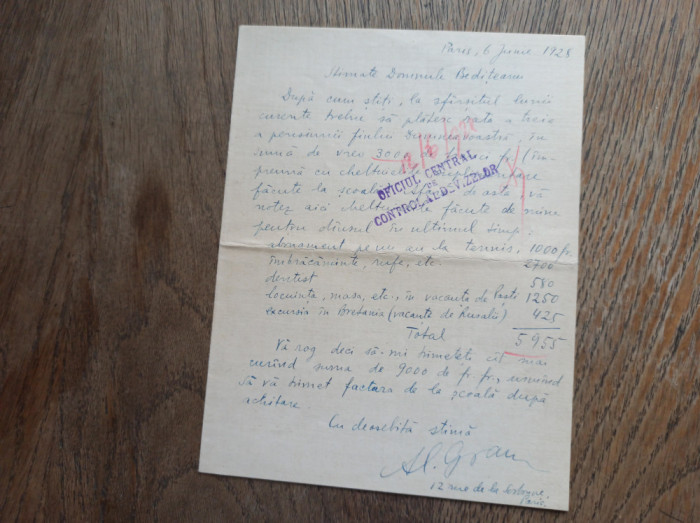 Paris, 6 June 1928
Stimate Domnule Bedițeanu
După cum știți, la sfârșitul lunii
curente trebue să plătesc rata a treia
a pensiunii fiului Dumneavoastră, în
sumă de vreo 3000 de (îm-
preună cu cheltuelile
făcute la școală) afară de asta, vă
notez aici cheltuelile făcute de mine
pentru dînsul în ultimul timp:
abonament pe un an la tennis, 1000 fr.
îmbrăcăminte, rufe, etc. 2700
dentist 580
locuința, masa, etc., în vacanța de Paști 1250
excursia în Bretania (vacanța de Rusalii) 425
Total 5955
Vă rog deci să-mi trimeteți cît mai
curînd suma de 9000 de fr. fr., urmînd
să vă trimet factura de la școală după
achitare.
Cu deosebită stimă
Al. Graur
12 rue de la Sorbonne,
Paris.
OFICIUL CENTRAL
DE
CONTROL AL DEVIZELOR